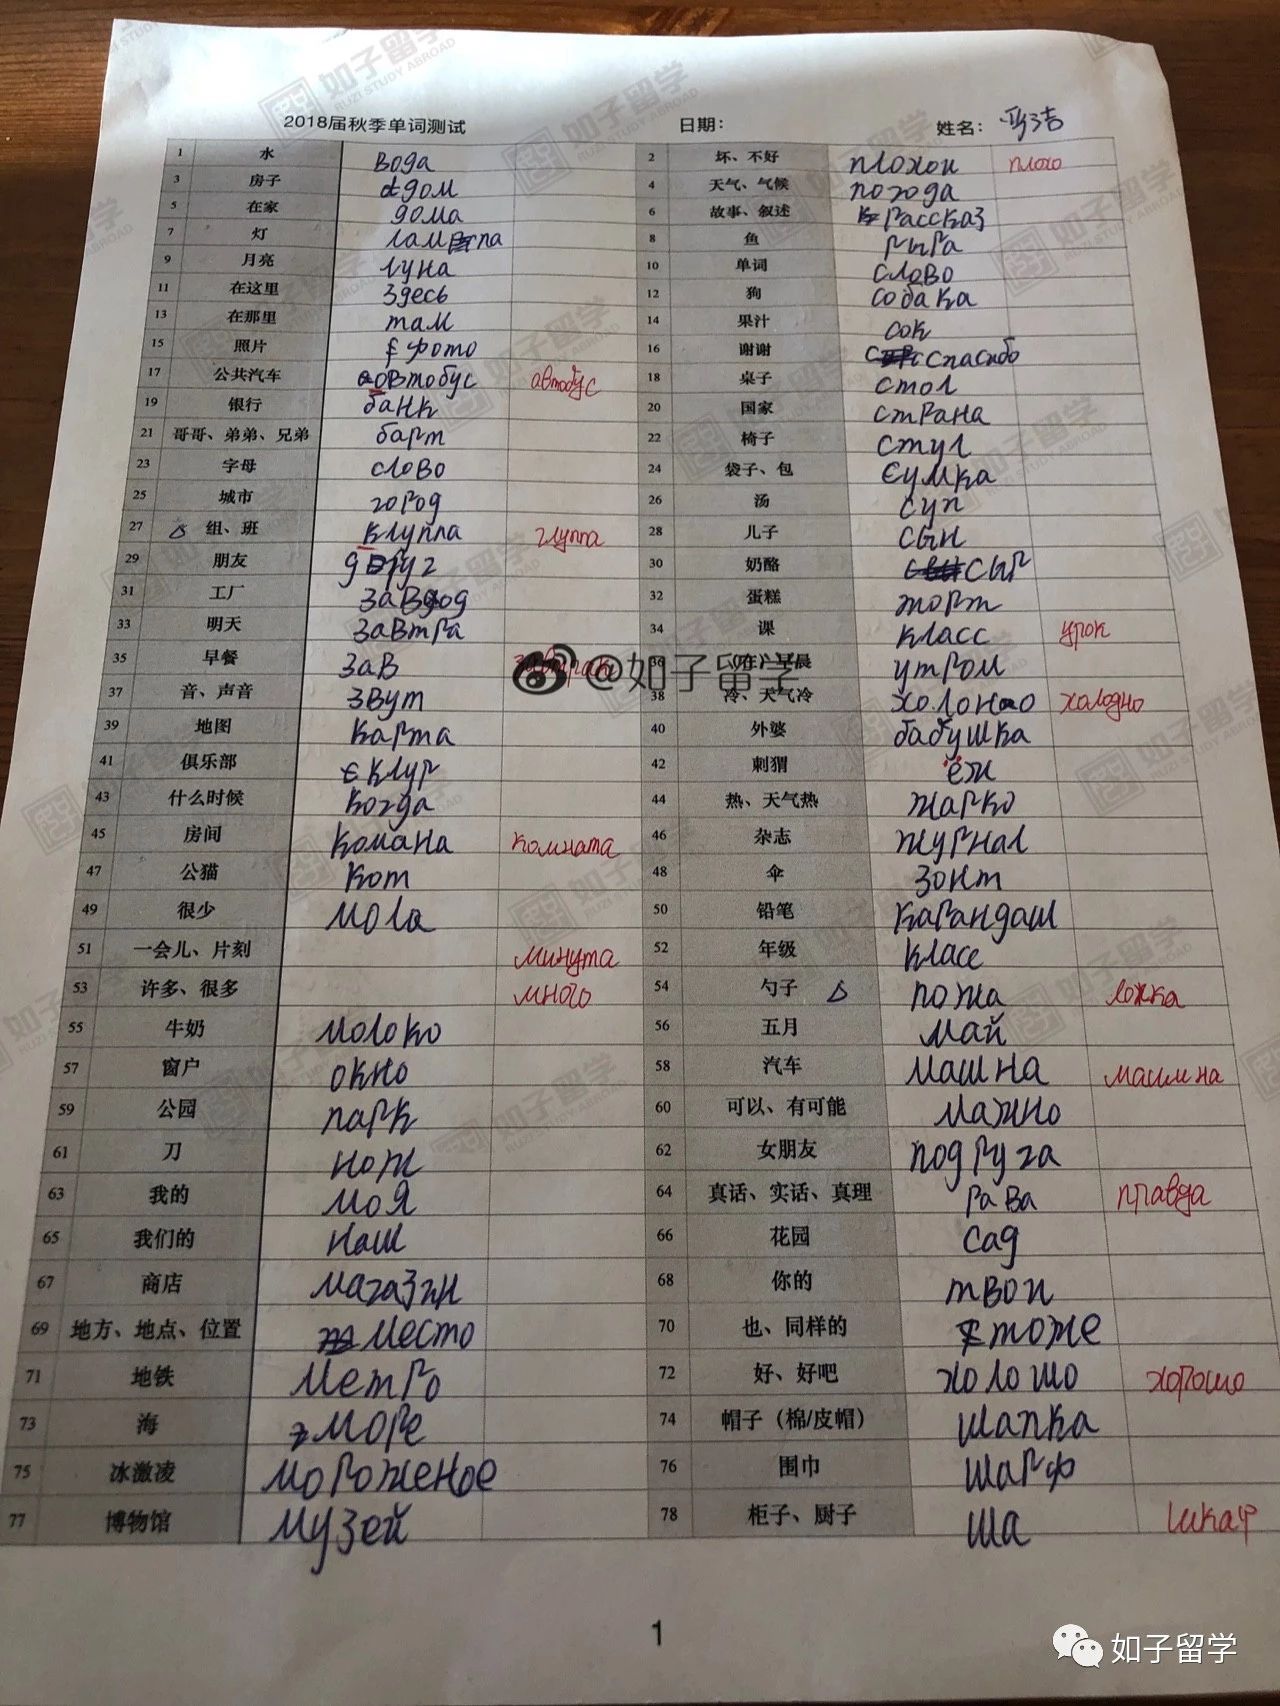 2018届秋季单词测试 日期： 姓名：
1 水 вода 2 坏、不好 плохои плохо
3 房子 дом 4 天气、气候 погода
5 在家 дома 6 故事、叙述 рассказ
7 灯 лампа 8 鱼 рыра
9 月亮 луна 10 单词 слово
11 在这里 здесь 12 狗 собака
13 在那里 там 14 果汁 сок
15 照片 фото 16 谢谢 спасибо
17 公共汽车 овтобус автобус 18 桌子 стол
19 银行 банк 20 国家 страна
21 哥哥、弟弟、兄弟 барт 22 椅子 стул
23 字母 слово 24 袋子、包 сумка
25 城市 город 26 汤 суп
27 组、班 клуппа глуппа 28 儿子 сын
29 朋友 друг 30 奶酪 сыр
31 工厂 завод 32 蛋糕 торт
33 明天 завтра 34 课 класс урок
35 早餐 зав 36 早晨 утром
37 音、声音 звут 38 冷、天气冷 холоно холодно
39 地图 карта 40 外婆 бабушка
41 俱乐部 клур 42 刺猬 ёж
43 什么时候 когда 44 热、天气热 жарко
45 房间 комана комната 46 杂志 журнал
47 公猫 кот 48 伞 зонт
49 很少 мола 50 铅笔 карандаш
51 一会儿、片刻 минута 52 年级 класс
53 许多、很多 много 54 勺子 пожа ложка
55 牛奶 молоко 56 五月 май
57 窗户 окно 58 汽车 машна машина
59 公园 парк 60 可以、有可能 мажно
61 刀 нож 62 女朋友 подруга
63 我的 моя 64 真话、实话、真理 рава правда
65 我们的 наш 66 花园 сад
67 商店 магазин 68 你的 твои
69 地方、地点、位置 место 70 也、同样的 тоже
71 地铁 метро 72 好、好吧 холошо хорошо
73 海 море 74 帽子（棉/皮帽） шапка
75 冰激凌 мороженое 76 围巾 шарф
77 博物馆 музей 78 柜子、厨子 ша шкаф
@如子留学
1
如子留学